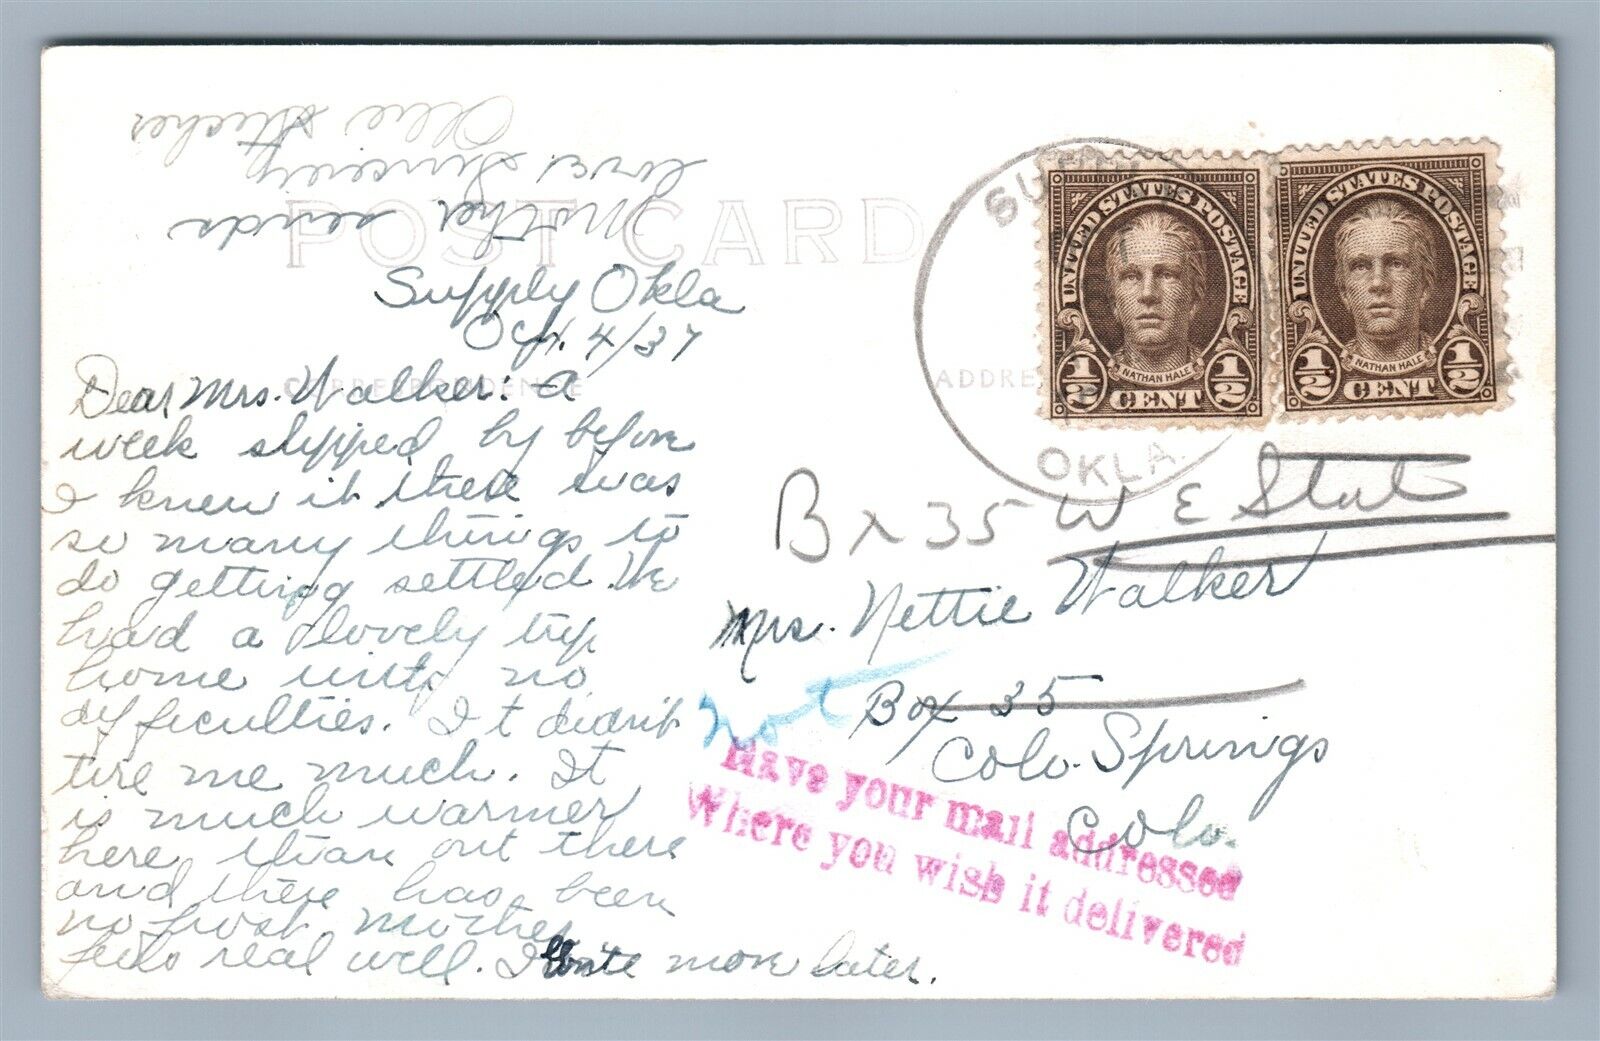 POST CARD
Supply Okla
Oct. 4/37
CORRESPONDENCE
Dear Mrs. Walker: A
week slipped by before
I knew it there was
so many things to
do getting settled. We
had a lovely trip
home with no
difficulties. It didn't
tire me much. It
is much warmer
here than out there
and there has been
no frost. Mother
feels real well. I write more later.
Mother sends
love. Sincerely
Ollie
SUPPLY
OKLA.
ADDRE
UNITED STATES POSTAGE
NATHAN HALE
1/2 CENT 1/2
UNITED STATES POSTAGE
NATHAN HALE
1/2 CENT 1/2
Bx 35 W E State
Mrs. Nettie Walker
Box 35
Colo. Springs
Colo.
Not
Have your mail addressed
Where you wish it delivered